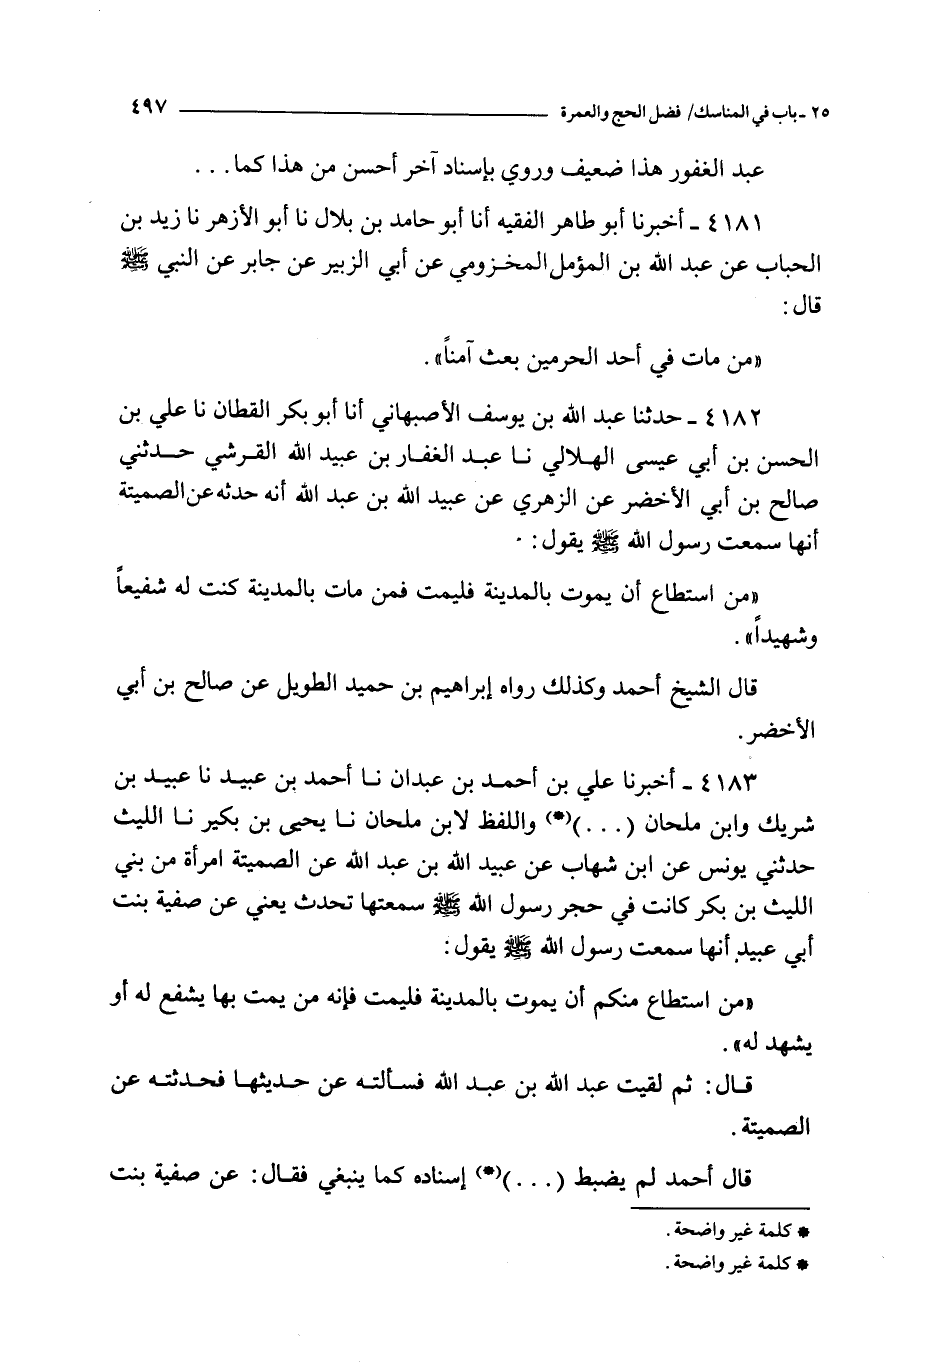 ٢٥ - باب في المناسك/ فضل الحج والعمرة ٤٩٧
عبد الغفور هذا ضعيف وروي بإسناد آخر أحسن من هذا كما...
٤١٨١ - أخبرنا أبو طاهر الفقيه أنا أبو حامد بن بلال نا أبو الأزهر نا زيد بن
الحباب عن عبد الله بن المؤمل المخزومي عن أبي الزبير عن جابر عن النبي ﷺ
قال:
«من مات في أحد الحرمين بعث آمناً».
٤١٨٢ - حدثنا عبد الله بن يوسف الأصبهاني أنا أبو بكر القطان نا علي بن
الحسن بن أبي عيسى الهلالي نا عبد الغفار بن عبيد الله القرشي حدثني
صالح بن أبي الأخضر عن الزهري عن عبيد الله بن عبد الله أنه حدثه عن الصميتة
أنها سمعت رسول الله ﷺ يقول:
«من استطاع أن يموت بالمدينة فليمت فمن مات بالمدينة كنت له شفيعاً
وشهيداً».
قال الشيخ أحمد وكذلك رواه إبراهيم بن حميد الطويل عن صالح بن أبي
الأخضر.
٤١٨٣ - أخبرنا علي بن أحمد بن عبدان نا أحمد بن عبيد نا عبيد بن
شريك وابن ملحان (...)(*) واللفظ لابن ملحان نا يحيى بن بكير نا الليث
حدثني يونس عن ابن شهاب عن عبيد الله بن عبد الله عن الصميتة امرأة من بني
الليث بن بكر كانت في حجر رسول الله ﷺ سمعتها تحدث يعني عن صفية بنت
أبي عبيد أنها سمعت رسول الله ﷺ يقول:
«من استطاع منكم أن يموت بالمدينة فليمت فإنه من يمت بها يشفع له أو
يشهد له».
قال: ثم لقيت عبد الله بن عبد الله فسألته عن حديثها فحدثته عن
الصميتة.
قال أحمد لم يضبط (...)(*) إسناده كما ينبغي فقال: عن صفية بنت
* كلمة غير واضحة.
* كلمة غير واضحة.